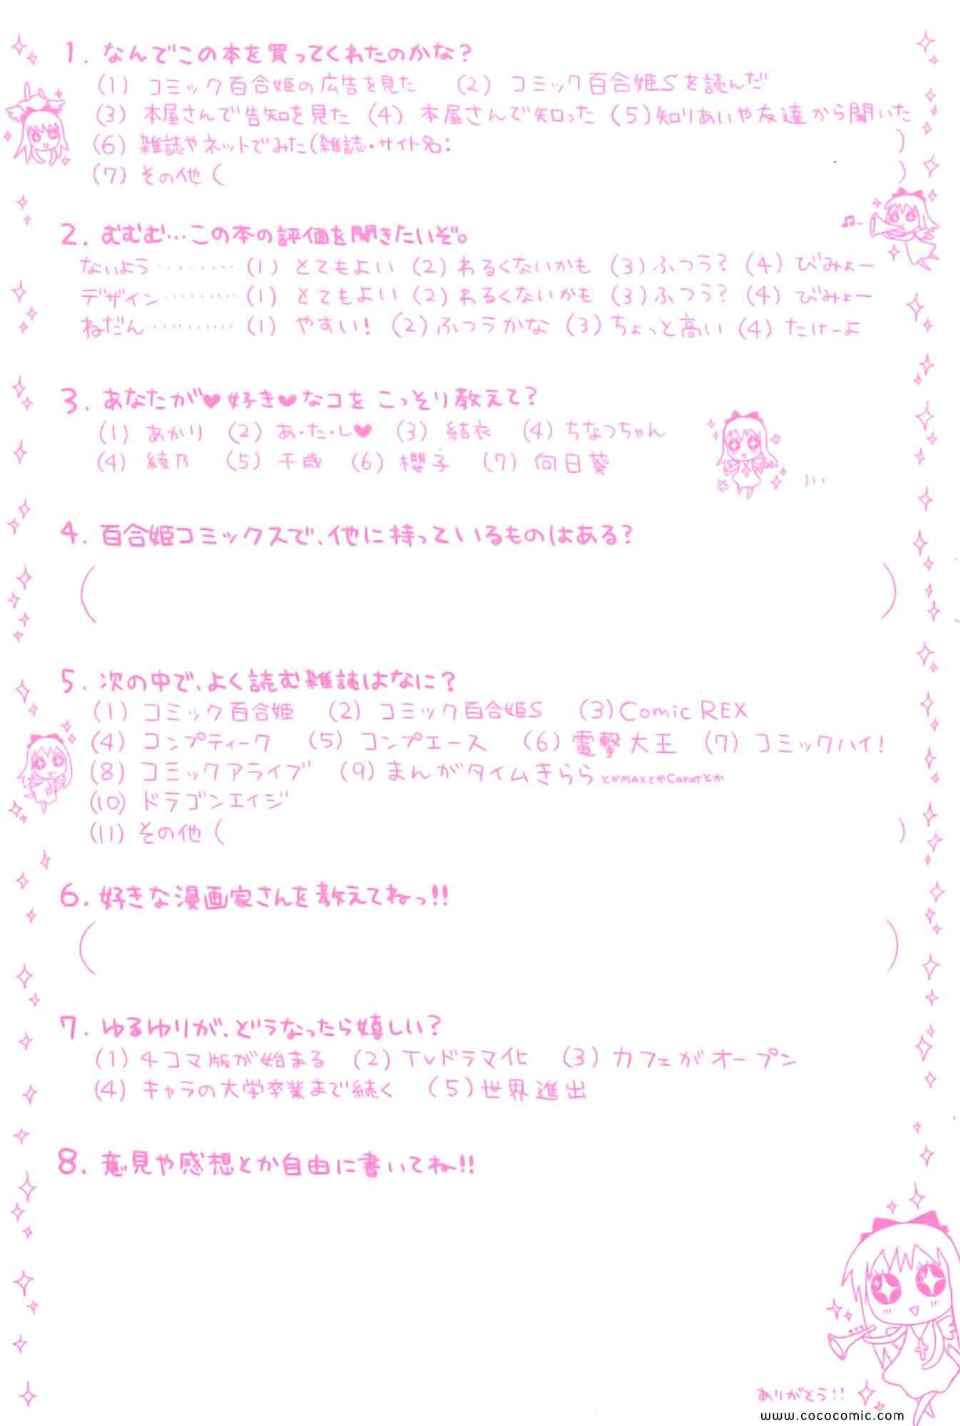 1. なんでこの本を買ってくれたのかな?
(1) コミック百合姫の広告を見た (2) コミック百合姫Sを読んだ
(3) 本屋さんで告知を見た (4) 本屋さんで知った (5)知りあいや友達から聞いた
(6) 雑誌やネットでみた(雑誌・サイト名: )
(7) その他 ( )
2. むむむ…この本の評価を聞きたいぞ。
ないよう……… (1) とてもよい (2) わるくないかも (3) ふつう? (4) びみょー
デザイン……… (1) とてもよい (2) わるくないかも (3) ふつう? (4) びみょー
ねだん………… (1) やすい! (2) ふつうかな (3) ちょっと高い (4) たけーよ
3. あなたが♥好き♥なコを こっそり教えて?
(1) あかり (2) あ・た・し♥ (3) 結衣 (4) ちなつちゃん
(4) 綾乃 (5) 千歳 (6) 櫻子 (7) 向日葵
4. 百合姫コミックスで、他に持っているものはある?
( )
5. 次の中で、よく読む雑誌はなに?
(1) コミック百合姫 (2) コミック百合姫S (3) Comic REX
(4) コンプティーク (5) コンプエース (6) 電撃大王 (7) コミックハイ!
(8) コミックアライブ (9) まんがタイムきらら とかMAXとかCaratとか
(10) ドラゴンエイジ
(11) その他 ( )
6. 好きな漫画家さんを教えてねっ!!
( )
7. ゆるゆりが、どうなったら嬉しい?
(1) 4コマ版が始まる (2) TVドラマ化 (3) カフェがオープン
(4) キャラの大学卒業まで続く (5) 世界進出
8. 意見や感想とか自由に書いてね!!
ありがとう!!
www.cococomic.com